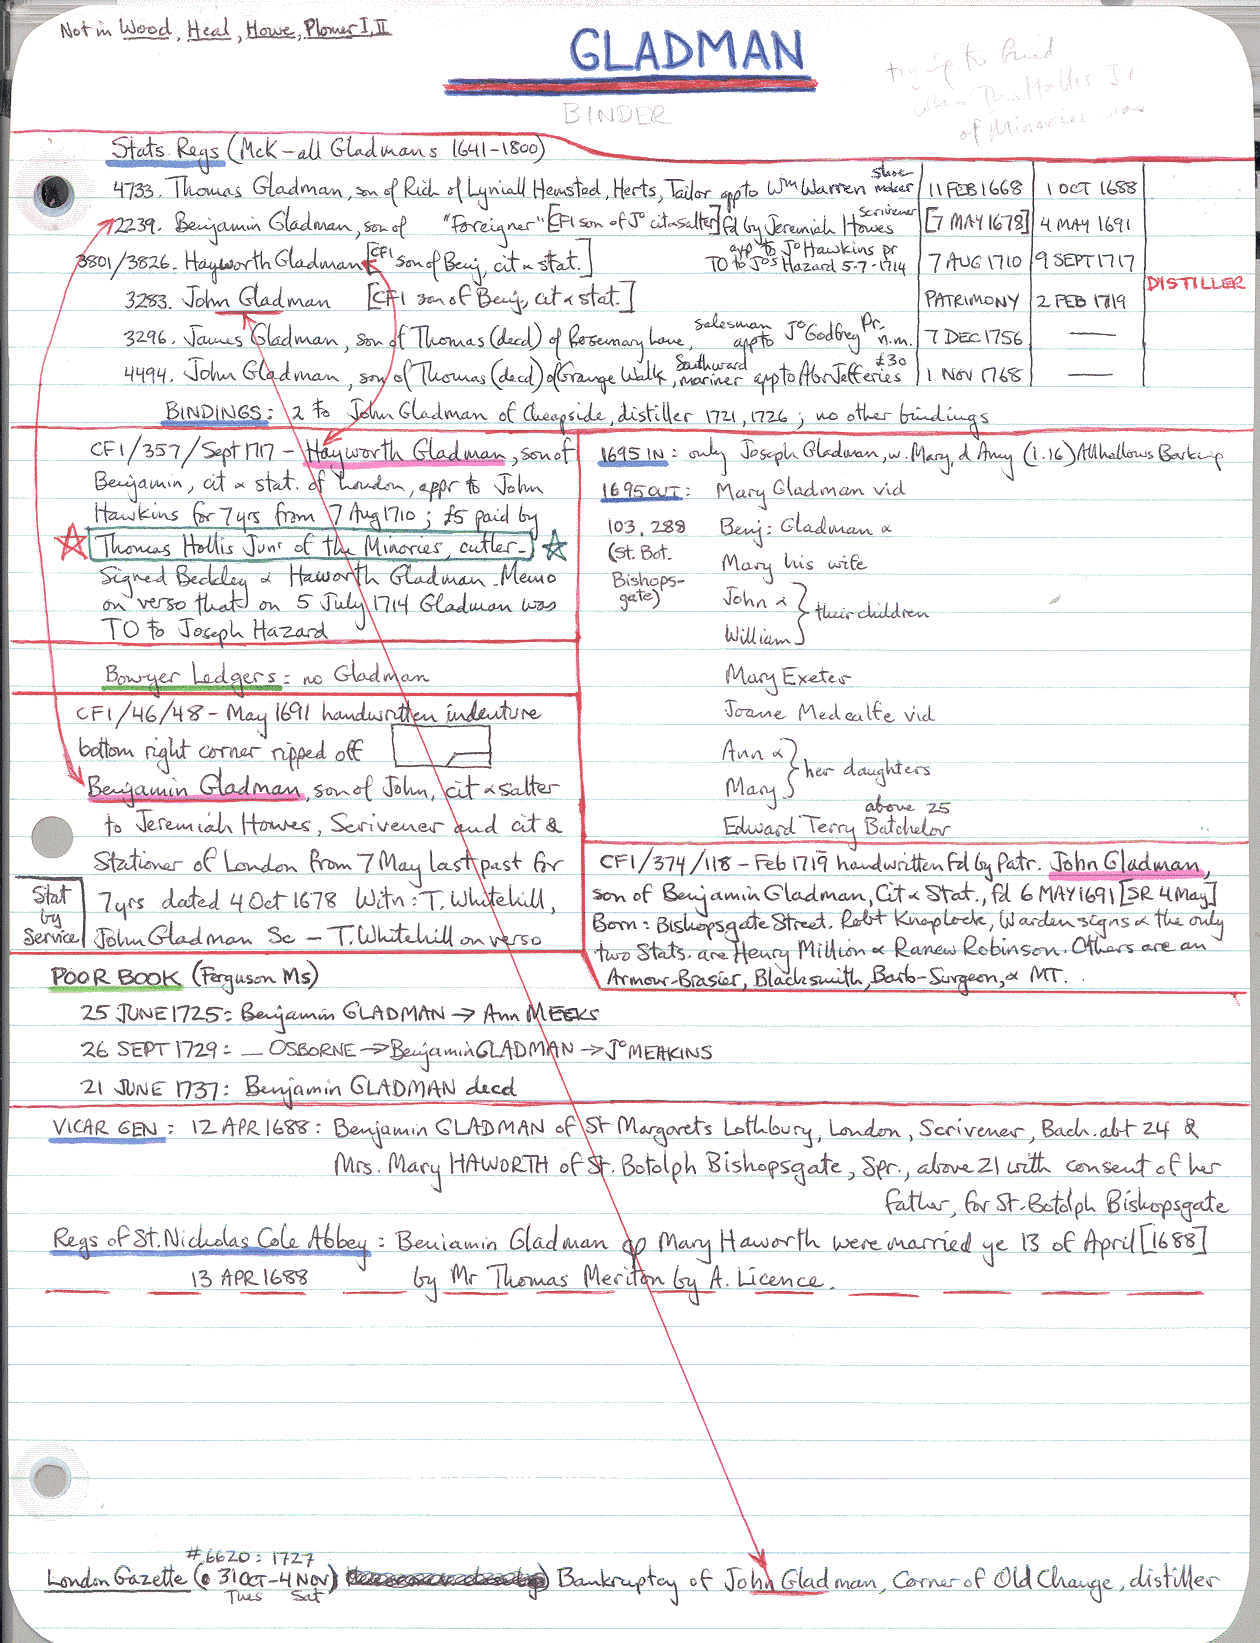 Not in Wood, Heal, Howe, Plomer I, II
GLADMAN
BINDER
trying to find
who Thos Hollis Jr
of Minories was
Stats. Regs (McK – all Gladmans 1641–1800)
4733. Thomas Gladman, son of Rich of Lyniall Hemsted, Herts, Tailor app to Wm Warren shoe maker 11 FEB 1668 1 OCT 1688
2239. Benjamin Gladman, son of "Foreigner" [CF1 son of Jo cit & salter] fd by Jeremiah Howes Scrivener [7 MAY 1678] 4 MAY 1691
3801/3826. Hayworth Gladman [CF1 son of Benj, cit & stat.] app to Jo Hawkins pr TO to Jos Hazard 5-7-1714 7 AUG 1710 9 SEPT 1717
3283. John Gladman [CF1 son of Benj, cit & stat.] PATRIMONY 2 FEB 1719 DISTILLER
3296. James Gladman, son of Thomas (decd) of Rosemary Lane, salesman app to Jo Godfrey Pr. n.m. 7 DEC 1756 —
4494. John Gladman, son of Thomas (decd) of Grange Walk, Southward mariner app to Abr Jefferies £30 1 NOV 1768 —
BINDINGS: 2 to John Gladman of Cheapside, distiller 1721, 1726; no other bindings
CF1/357/Sept 1717 – Hayworth Gladman, son of
Benjamin, cit & stat. of London, appr to John
Hawkins for 7 yrs from 7 Aug 1710; £5 paid by
Thomas Hollis Junr of the Minories, cutler –
Signed Beckley & Haworth Gladman. Memo
on verso that on 5 July 1714 Gladman was
TO to Joseph Hazard
Bowyer Ledgers: no Gladman
CF1/46/48 – May 1691 handwritten indenture
bottom right corner ripped off
Benjamin Gladman, son of John, cit & salter
to Jeremiah Howes, Scrivener and cit &
Stationer of London from 7 May last past for
7 yrs dated 4 Oct 1678 Witn: T. Whitehill,
John Gladman Sc – T. Whitehill on verso
Stat
by
Service
1695 IN: only Joseph Gladman, w. Mary, d Amy (1.16) Allhallows Barking
1695 OUT: Mary Gladman vid
103.288 Benj: Gladman &
(St. Bot. Mary his wife
Bishops- John &
gate) William } their children
Mary Exeter
Joane Medcalfe vid
Ann &
Mary } her daughters
above 25
Edward Terry Batchelor
CF1/374/118 – Feb 1719 handwritten fd by Patr. John Gladman,
son of Benjamin Gladman, Cit & Stat., fd 6 MAY 1691 [SR 4 May]
Born: Bishopsgate Street. Robt Knaplock, Warden signs & the only
two Stats. are Henry Million & Ranew Robinson. Others are an
Armour-Brasier, Blacksmith, Barb-Surgeon, & MT.
POOR BOOK (Ferguson Ms)
25 JUNE 1725: Benjamin GLADMAN → Ann MEEKS
26 SEPT 1729: — OSBORNE → Benjamin GLADMAN → Jo MEAKINS
21 JUNE 1737: Benjamin GLADMAN decd
VICAR GEN: 12 APR 1688: Benjamin GLADMAN of St Margarets Lothbury, London, Scrivener, Bach. abt 24 &
Mrs. Mary HAWORTH of St. Botolph Bishopsgate, Spr., above 21 with consent of her
father, for St. Botolph Bishopsgate
Regs of St. Nicholas Cole Abbey: Beniamin Gladman & Mary Haworth were married ye 13 of April [1688]
13 APR 1688 by Mr Thomas Meriton by A. Licence.
#6620: 1727
London Gazette (@ 31 OCT – 4 NOV) Bankruptcy of John Gladman, Corner of Old Change, distiller
Tues Sat